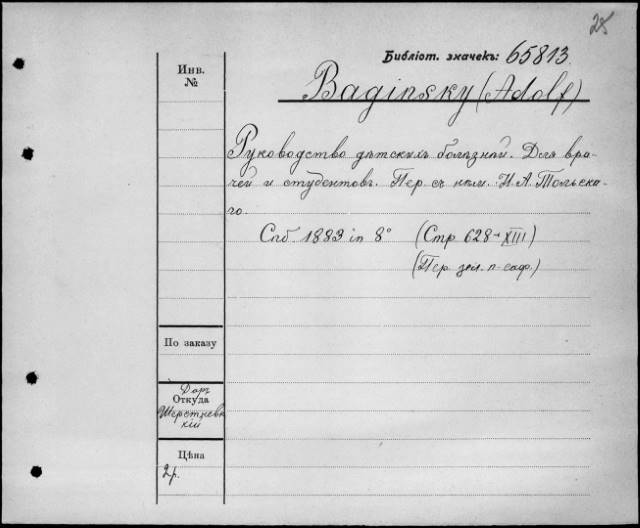 28
Библіот. значекъ: 65813
Инв.
№
Baginsky (Adolf)
Руководство дѣтскихъ болѣзней. Для вра-
чей и студентовъ. Пер. съ нѣм. Н. А. Тольска-
го.
Спб. 1883 in 8° (Стр 628+XIII)
(Пер. зел. п-саф.)
По заказу
Даръ
Откуда
кій
Цѣна
2р.